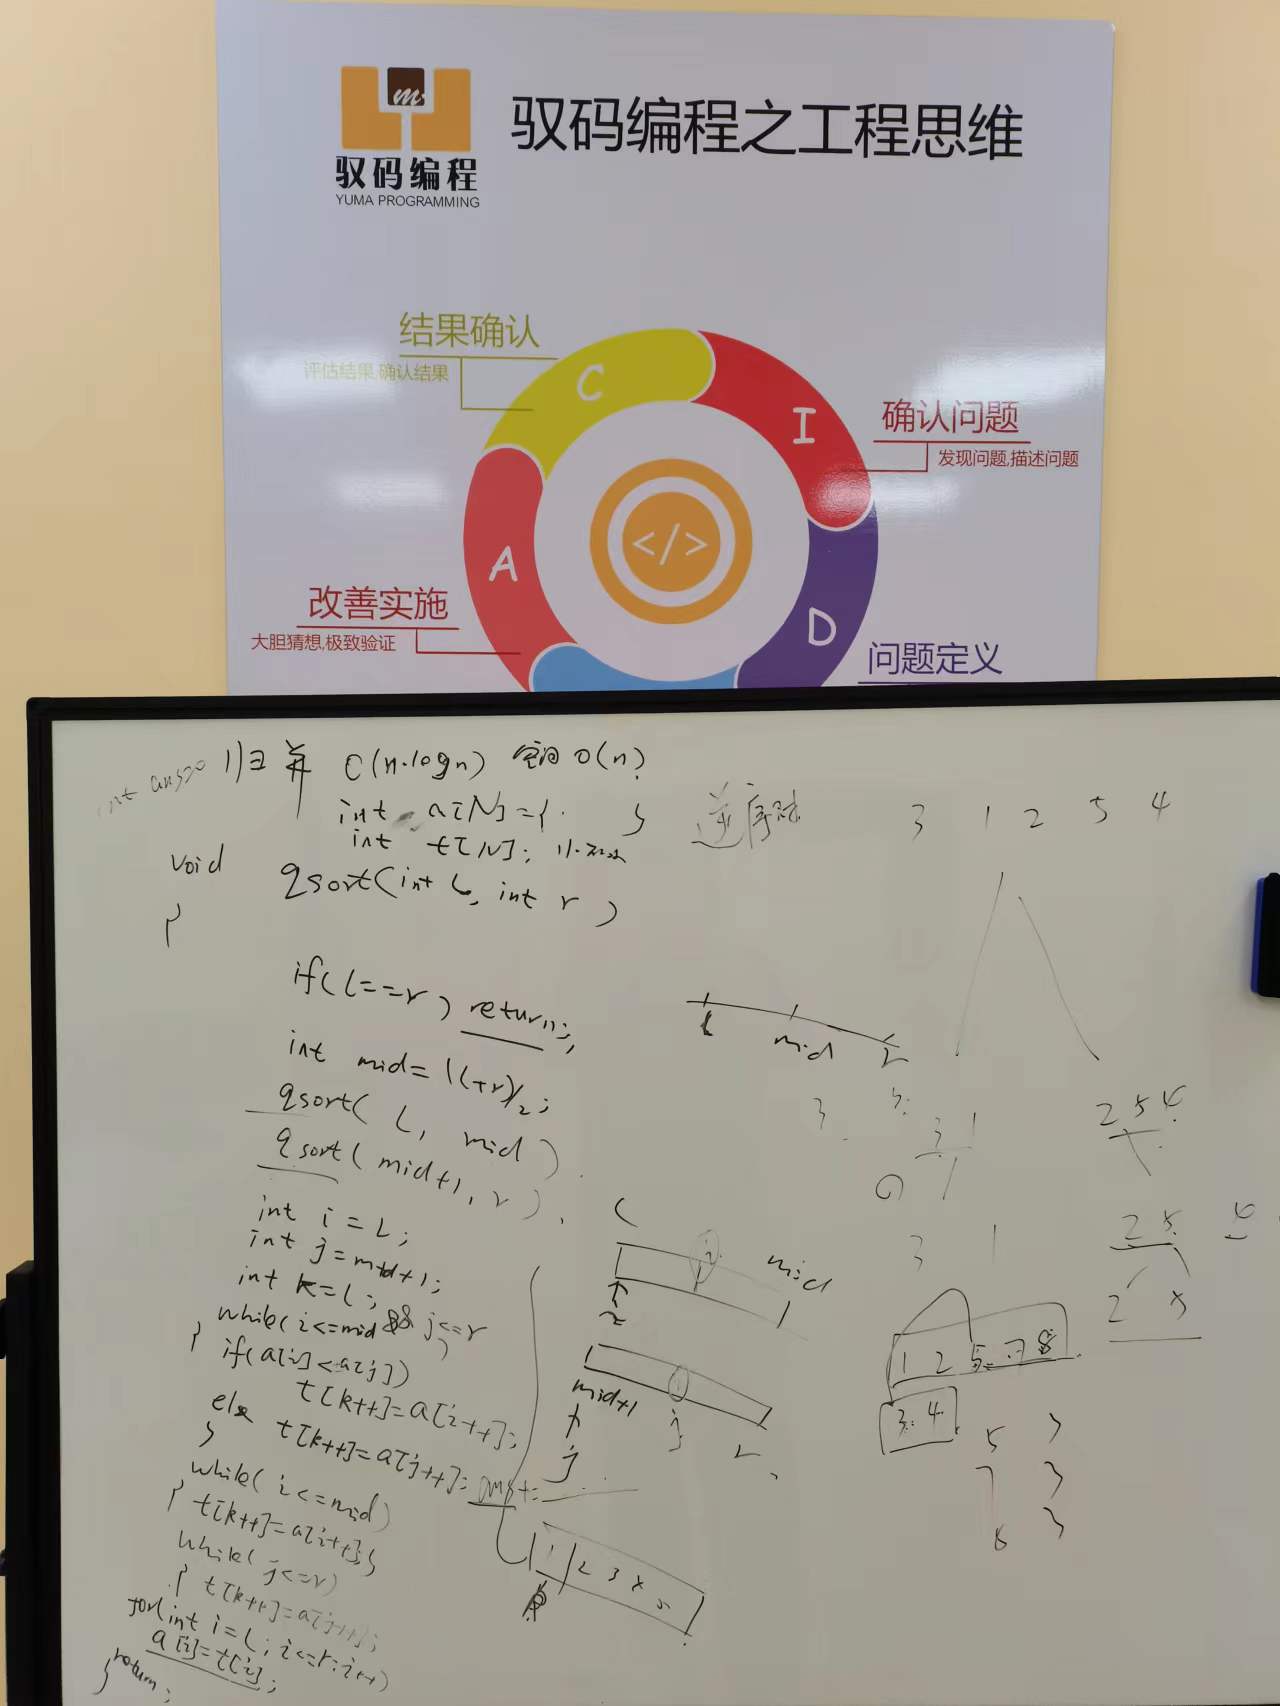 m
驭码编程
YUMA PROGRAMMING
驭码编程之工程思维
结果确认
评估结果,确认结果
C
I
确认问题
发现问题,描述问题
A
改善实施
大胆猜想,极致验证
</>
D
问题定义
int ans=0
归并 O(n·logn) 空间 O(n)
int a[N]={ }
int t[N];
void qsort(int L, int r)
{
if(l==r) return;
int mid=(l+r)/2;
qsort(L, mid)
qsort(mid+1, r);
int i=L;
int j=mid+1;
int k=l;
while(i<=mid && j<=r)
{ if(a[i]<a[j])
t[k++]=a[i++];
else t[k++]=a[j++]; ans+=
}
while(i<=mid)
{ t[k++]=a[i++];}
while(j<=r)
{ t[k++]=a[j++];
for(int i=L;i<=r;i++)
a[i]=t[i];
return;
}
逆序对
3 1 2 5 4
L mid r
3
3 1
2 5 4
3 1
2 5 4
2 5
L i mid
i
mid+1 j r
j
1 2 3 4 5
1 2 5 7 8
3 4
5 3
7 3
8 3